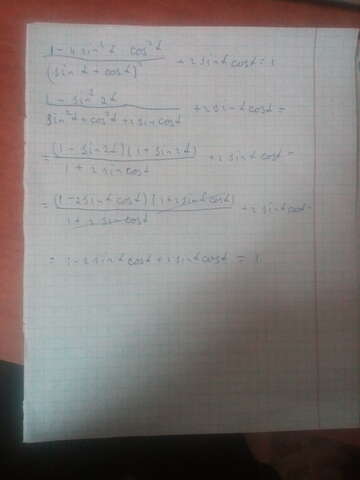 (1 - 4 sin²α cos²α) / (sin α + cos α)² + 2 sin α cos α = 1
(1 - sin² 2α) / (sin²α + cos²α + 2 sin cos α) + 2 sin α cos α =
= (1 - sin 2α)(1 + sin 2α) / (1 + 2 sin cos α) + 2 sin α cos α =
= (1 - 2 sin α cos α)(1 + 2 sin α cos α) / (1 + 2 sin cos α) + 2 sin α cos α =
= 1 - 2 sin α cos α + 2 sin α cos α = 1.